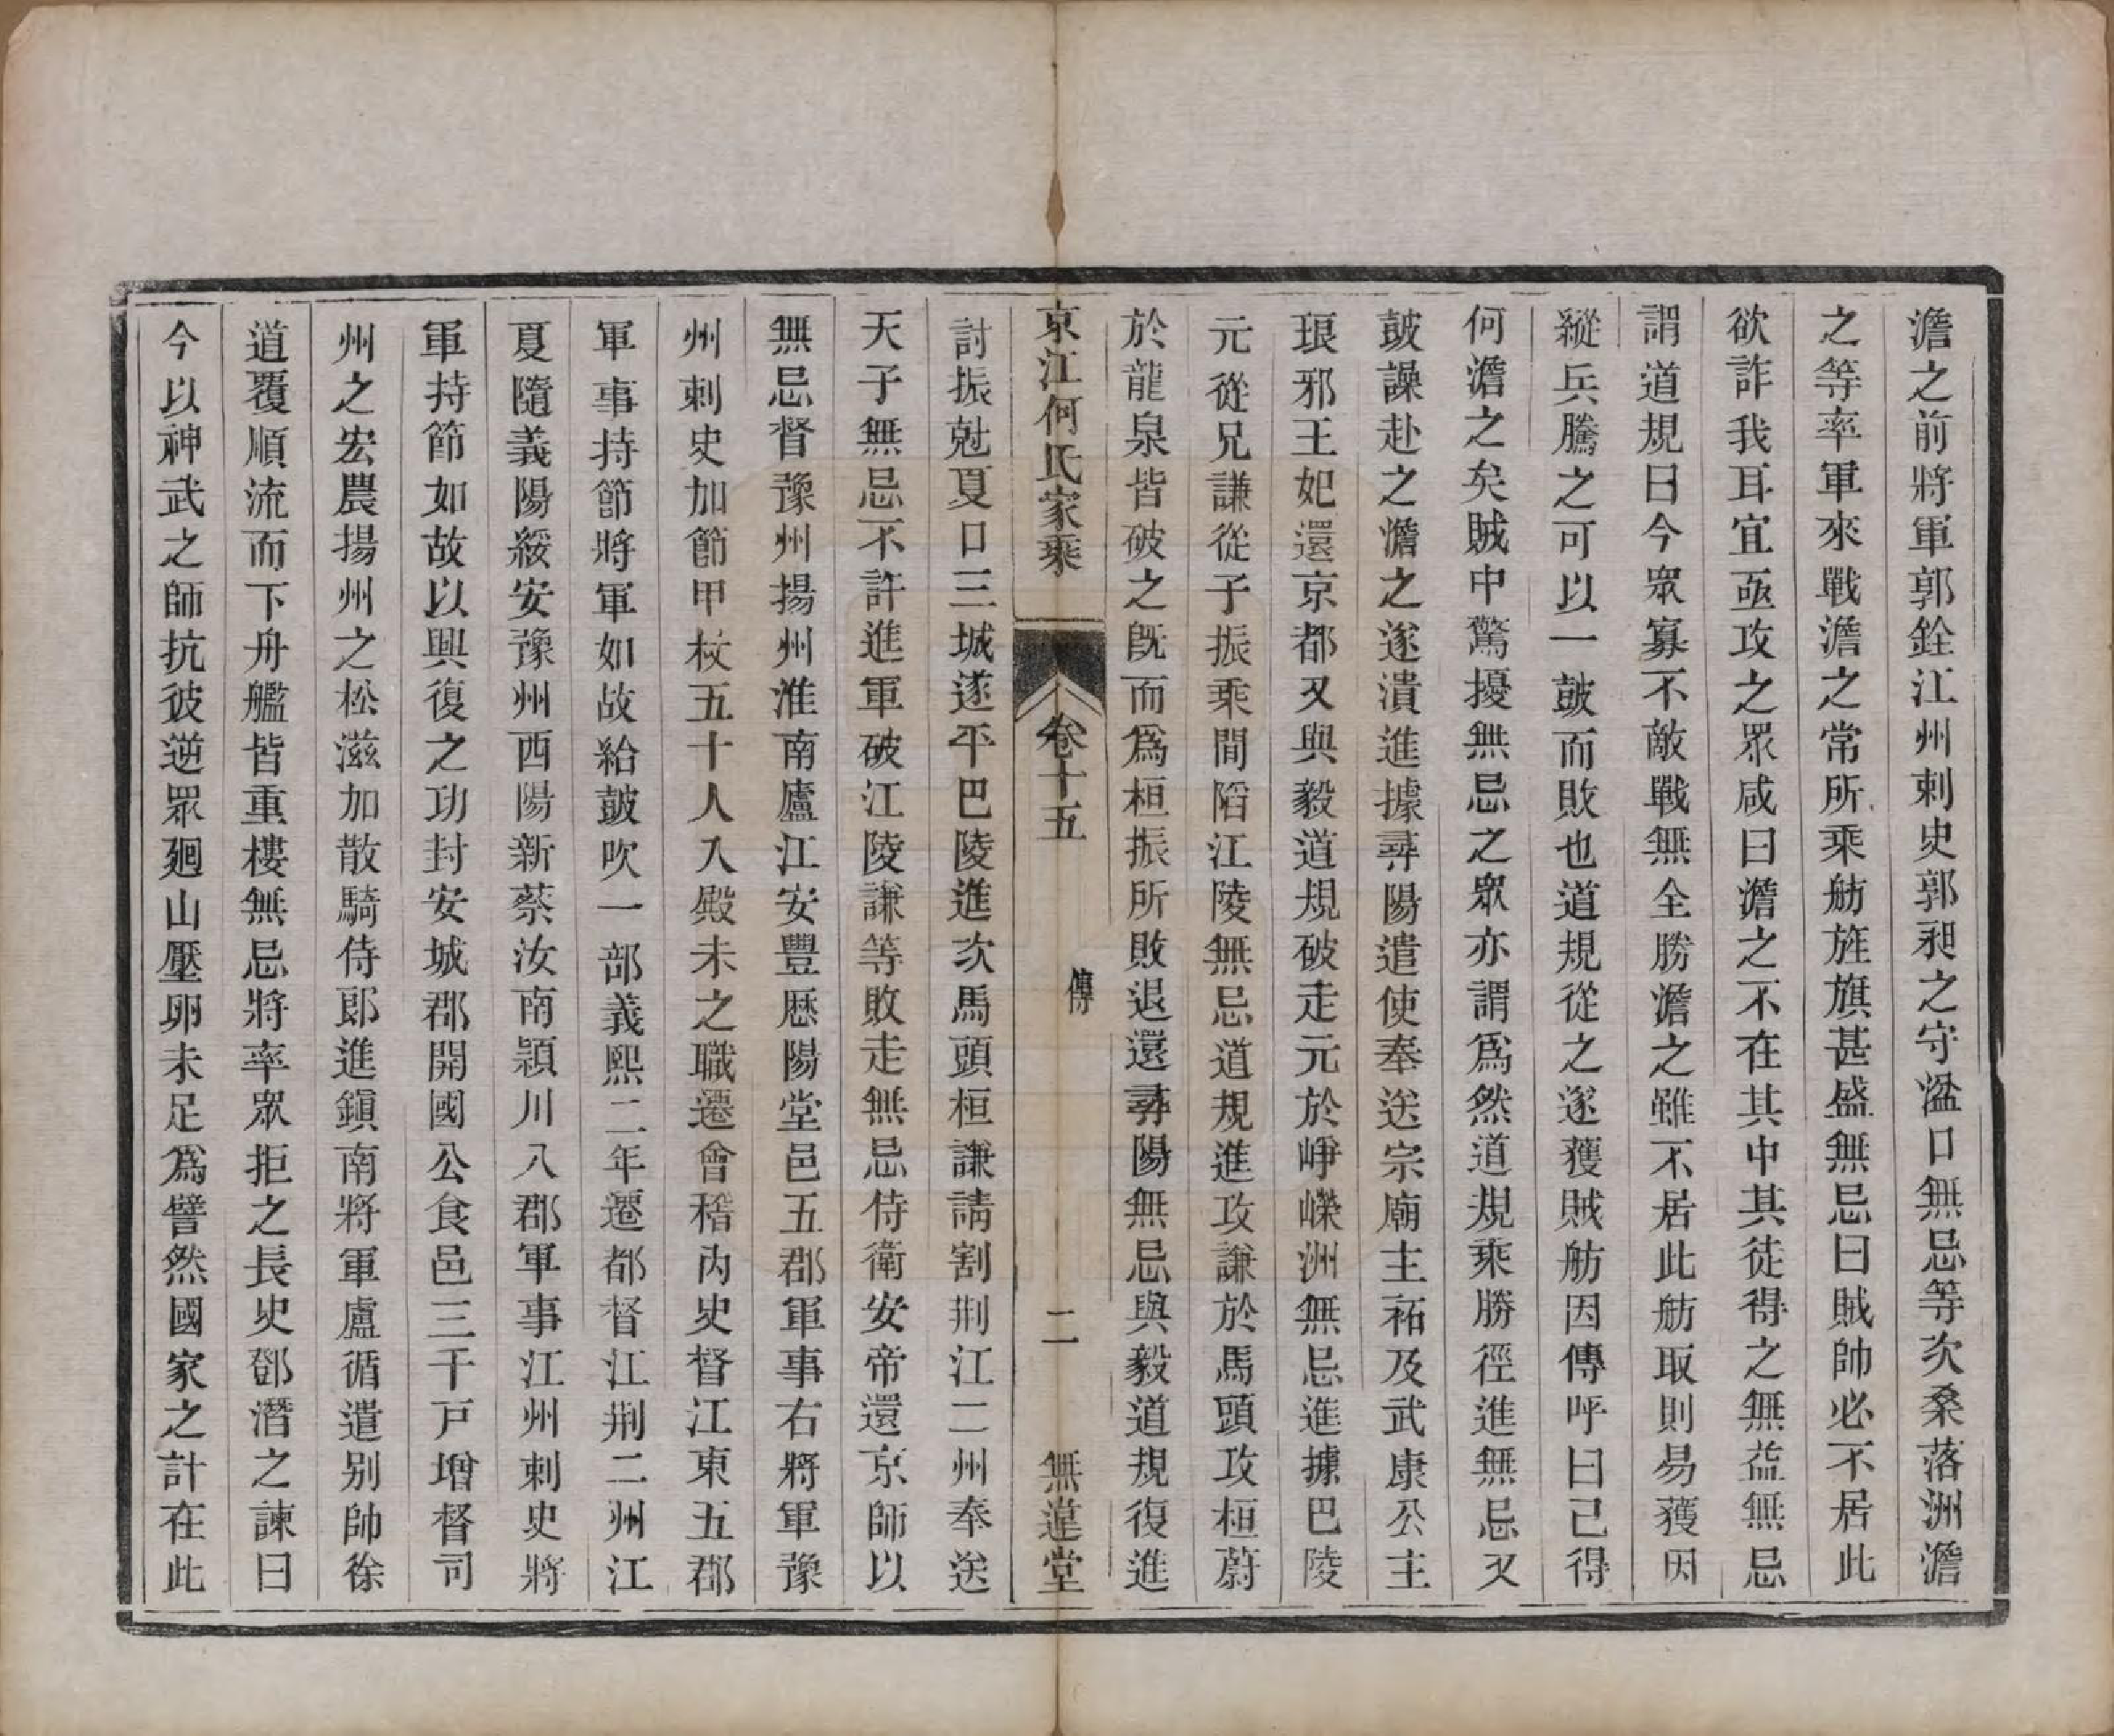 澹之前將軍郭銓江州刺史郭昶之守湓口無忌等次桑落洲澹
之等率軍來戰澹之常所乘舫旌旗甚盛無忌曰賊帥必不居此
欲詐我耳宜亟攻之眾咸曰澹之不在其中其徒得之無益無忌
謂道規曰今眾寡不敵戰無全勝澹之雖不居此舫取則易獲因
縱兵騰之可以一皷而敗也道規從之遂獲賊舫因傳呼曰已得
何澹之矣賊中驚擾無忌之眾亦謂爲然道規乘勝徑進無忌又
皷譟赴之澹之遂潰進據尋陽遣使奉送宗廟主祏及武康公主
琅邪王妃還京都又與毅道規破走元於崢嶸洲無忌進據巴陵
元從兄謙從子振乘間陷江陵無忌道規進攻謙於馬頭攻桓蔚
於龍泉皆破之既而爲桓振所敗退還尋陽無忌與毅道規復進
京江何氏家乘
卷十五
傳
二
無遑堂
討振尅夏口三城遂平巴陵進次馬頭桓謙請割荆江二州奉送
天子無忌不許進軍破江陵謙等敗走無忌侍衛安帝還京師以
無忌督豫州揚州淮南廬江安豐歷陽堂邑五郡軍事右將軍豫
州刺史加節甲杖五十人入殿未之職遷會稽內史督江東五郡
軍事持節將軍如故給皷吹一部義熙二年遷都督江荆二州江
夏隨義陽綏安豫州西陽新蔡汝南潁川八郡軍事江州刺史將
軍持節如故以興復之功封安城郡開國公食邑三千戸增督司
州之宏農揚州之松滋加散騎侍郎進鎭南將軍盧循遣别帥徐
道覆順流而下舟艦皆重樓無忌將率眾拒之長史鄧潛之諫曰
今以神武之師抗彼逆眾迴山壓卵未足爲譬然國家之計在此